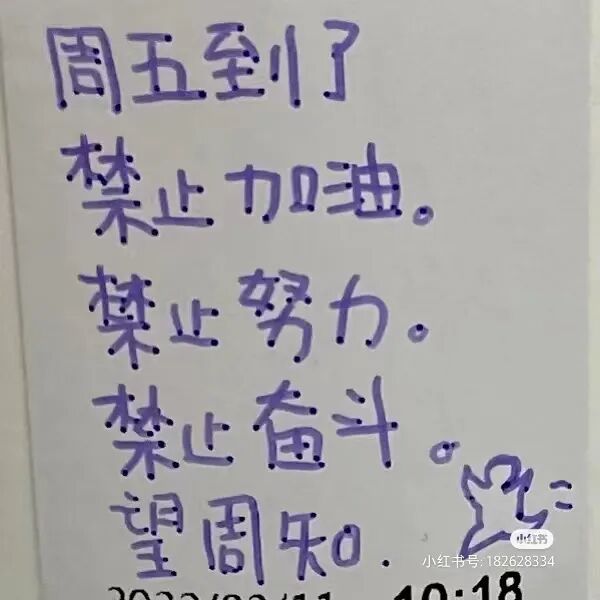 周五到了
禁止加油。
禁止努力。
禁止奋斗。
望周知.
小红书
小红书号:182628334
10:18